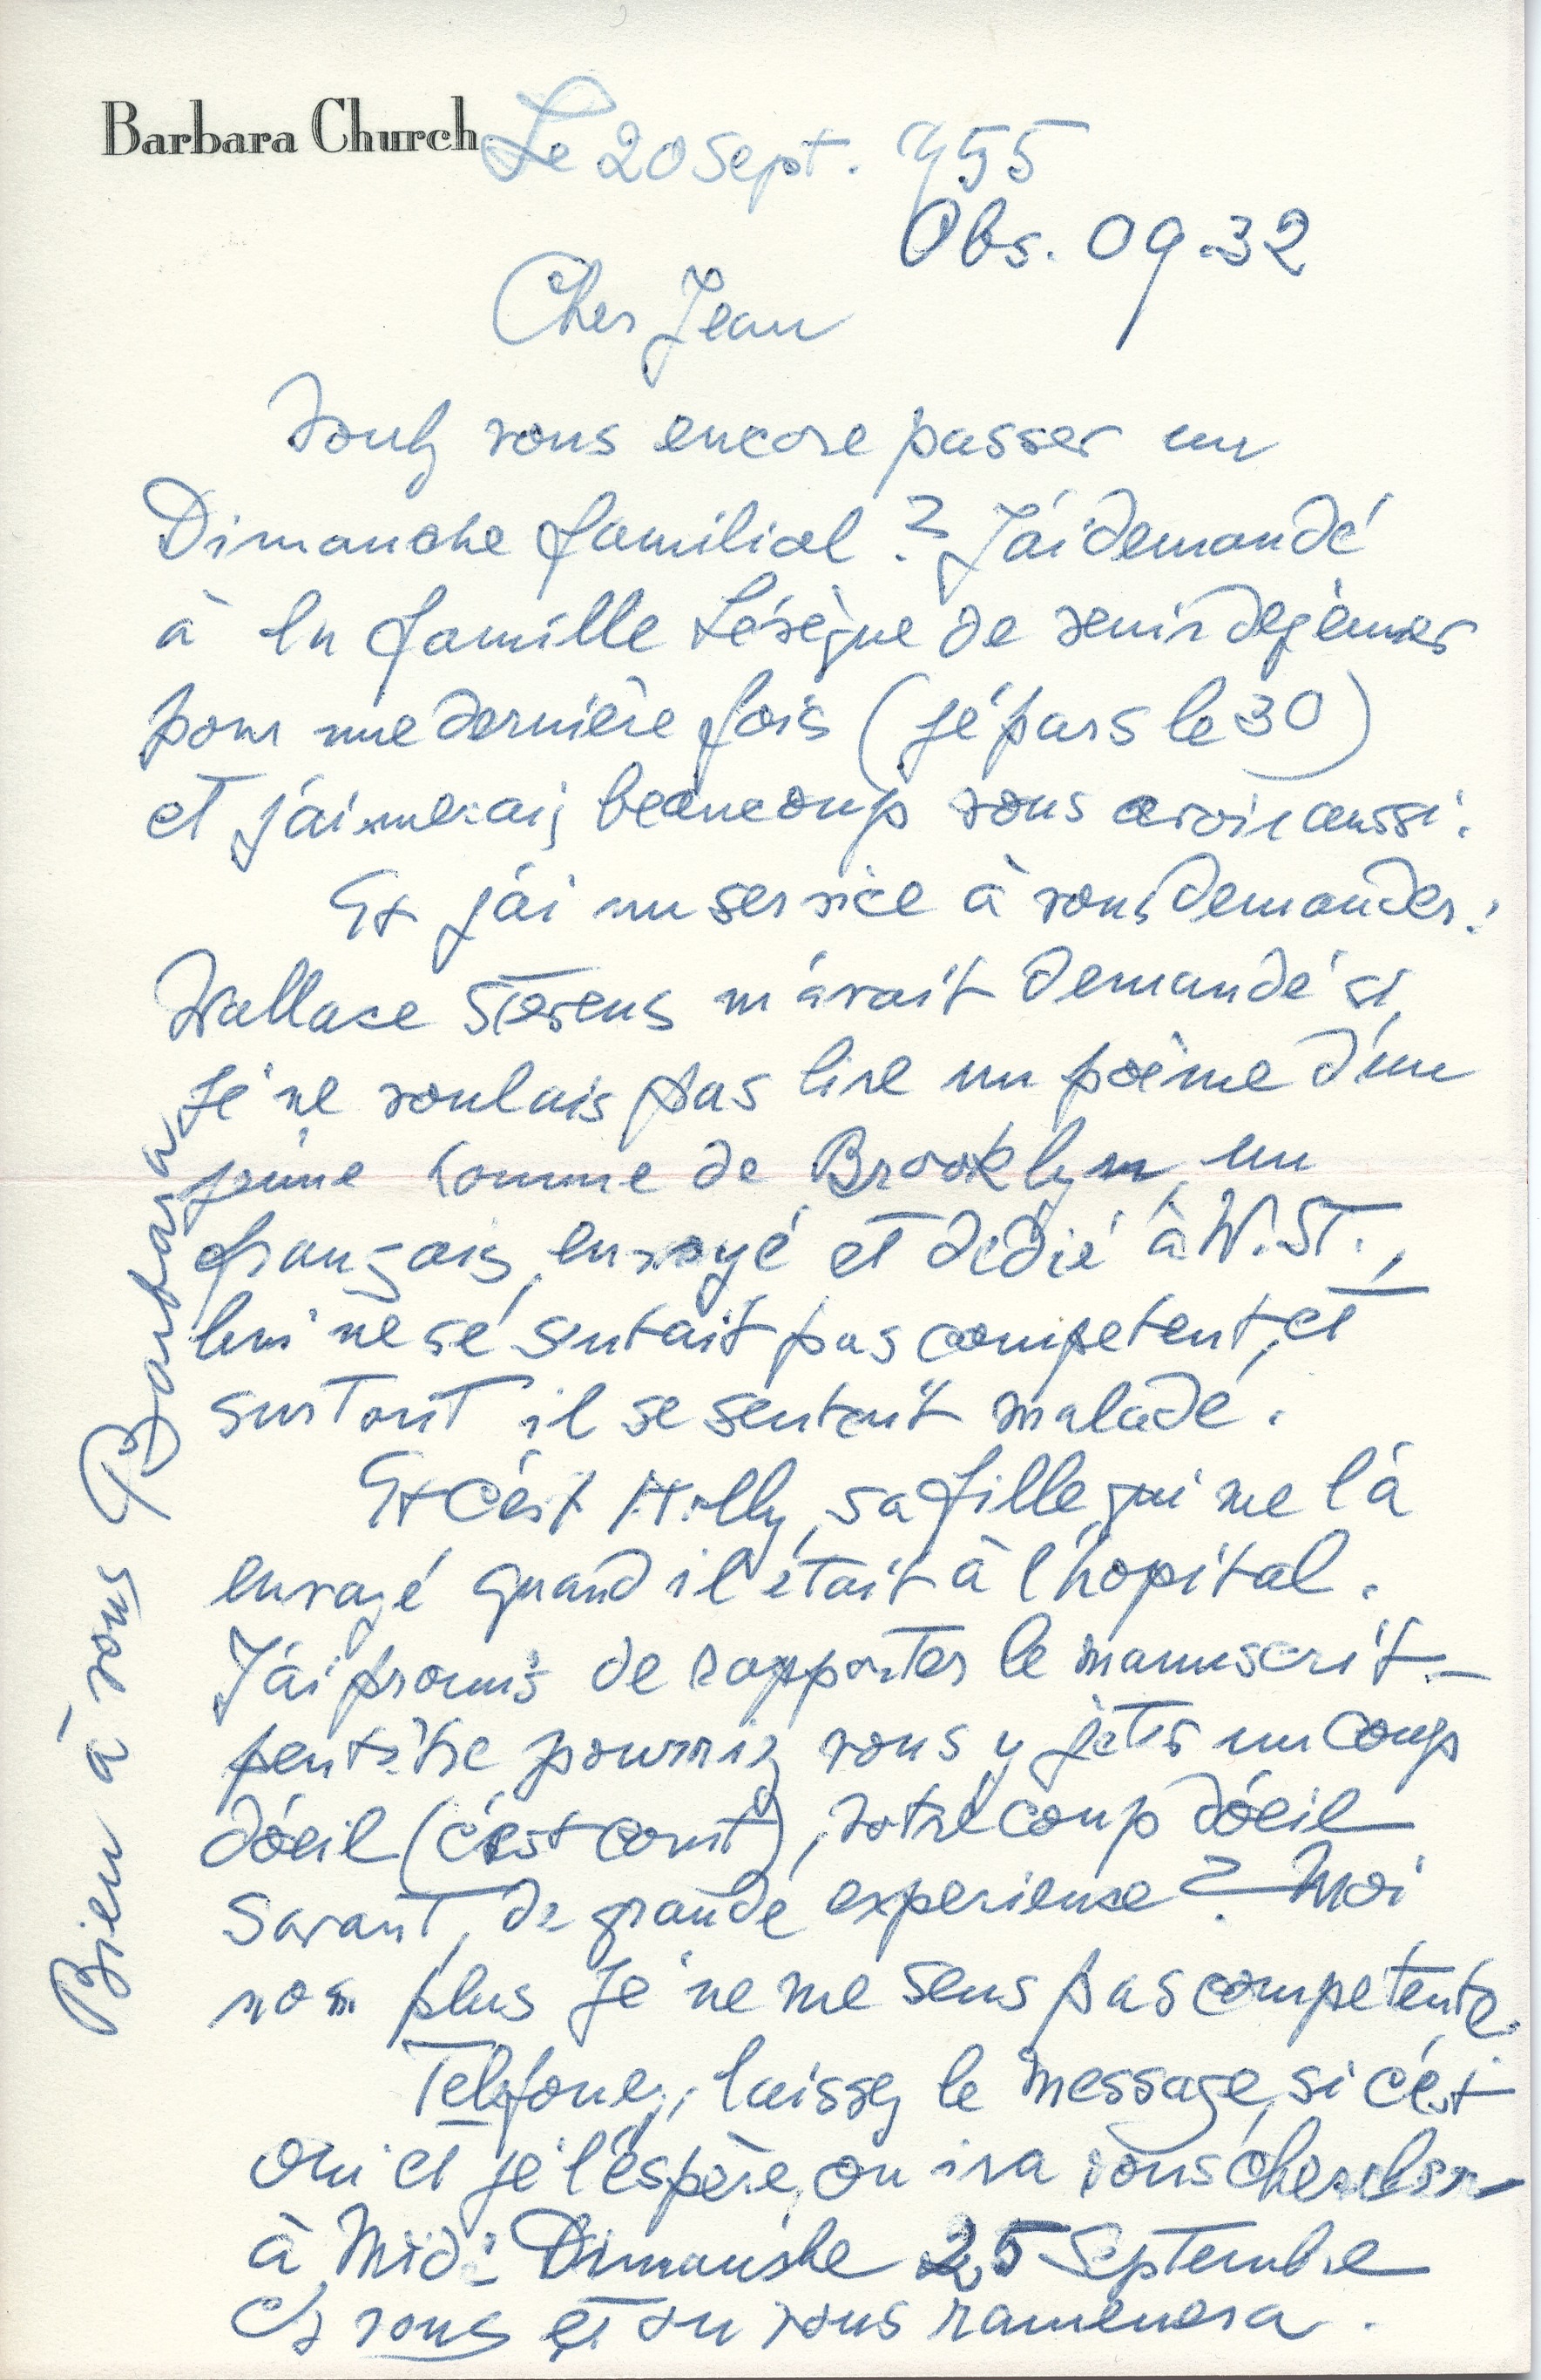 Barbara Church
Le 20 Sept. 955
Obs. 09-32
Cher Jean
Voulez vous encore passer un
Dimanche familial? J'ai demandé
à la famille Lévèque de venir dejèuner
pour une dernière fois (je pars le 30)
et j'aimerais beaucoup vous avoir aussi.
Et j'ai un service à vous demander:
Wallace Stevens m'avait demandé si
je ne voulais pas lire un poème d'un
jeune homme de Brooklyn, un
français, envoyé et dédié à W. ST.,
lui ne se sentait pas competent, et
surtout il se sentait malade.
Et c'est Holly, sa fille, qui me l'a
envoyé quand il était à l'hopital.
J'ai promis de rapporter le manuscrit -
peut-être pourriez vous y jeter un coup
d'oeil (c'est court), votre coup d'oeil
savant, de grande experience? Moi
non plus je ne me sens pas competente.
Telefonez, laissez le message, si c'est
oui et je l'espère, on ira vous chercher
à Midi Dimanche 25 Septembre
chez vous et on vous ramenera.
Bien à vous Barbara